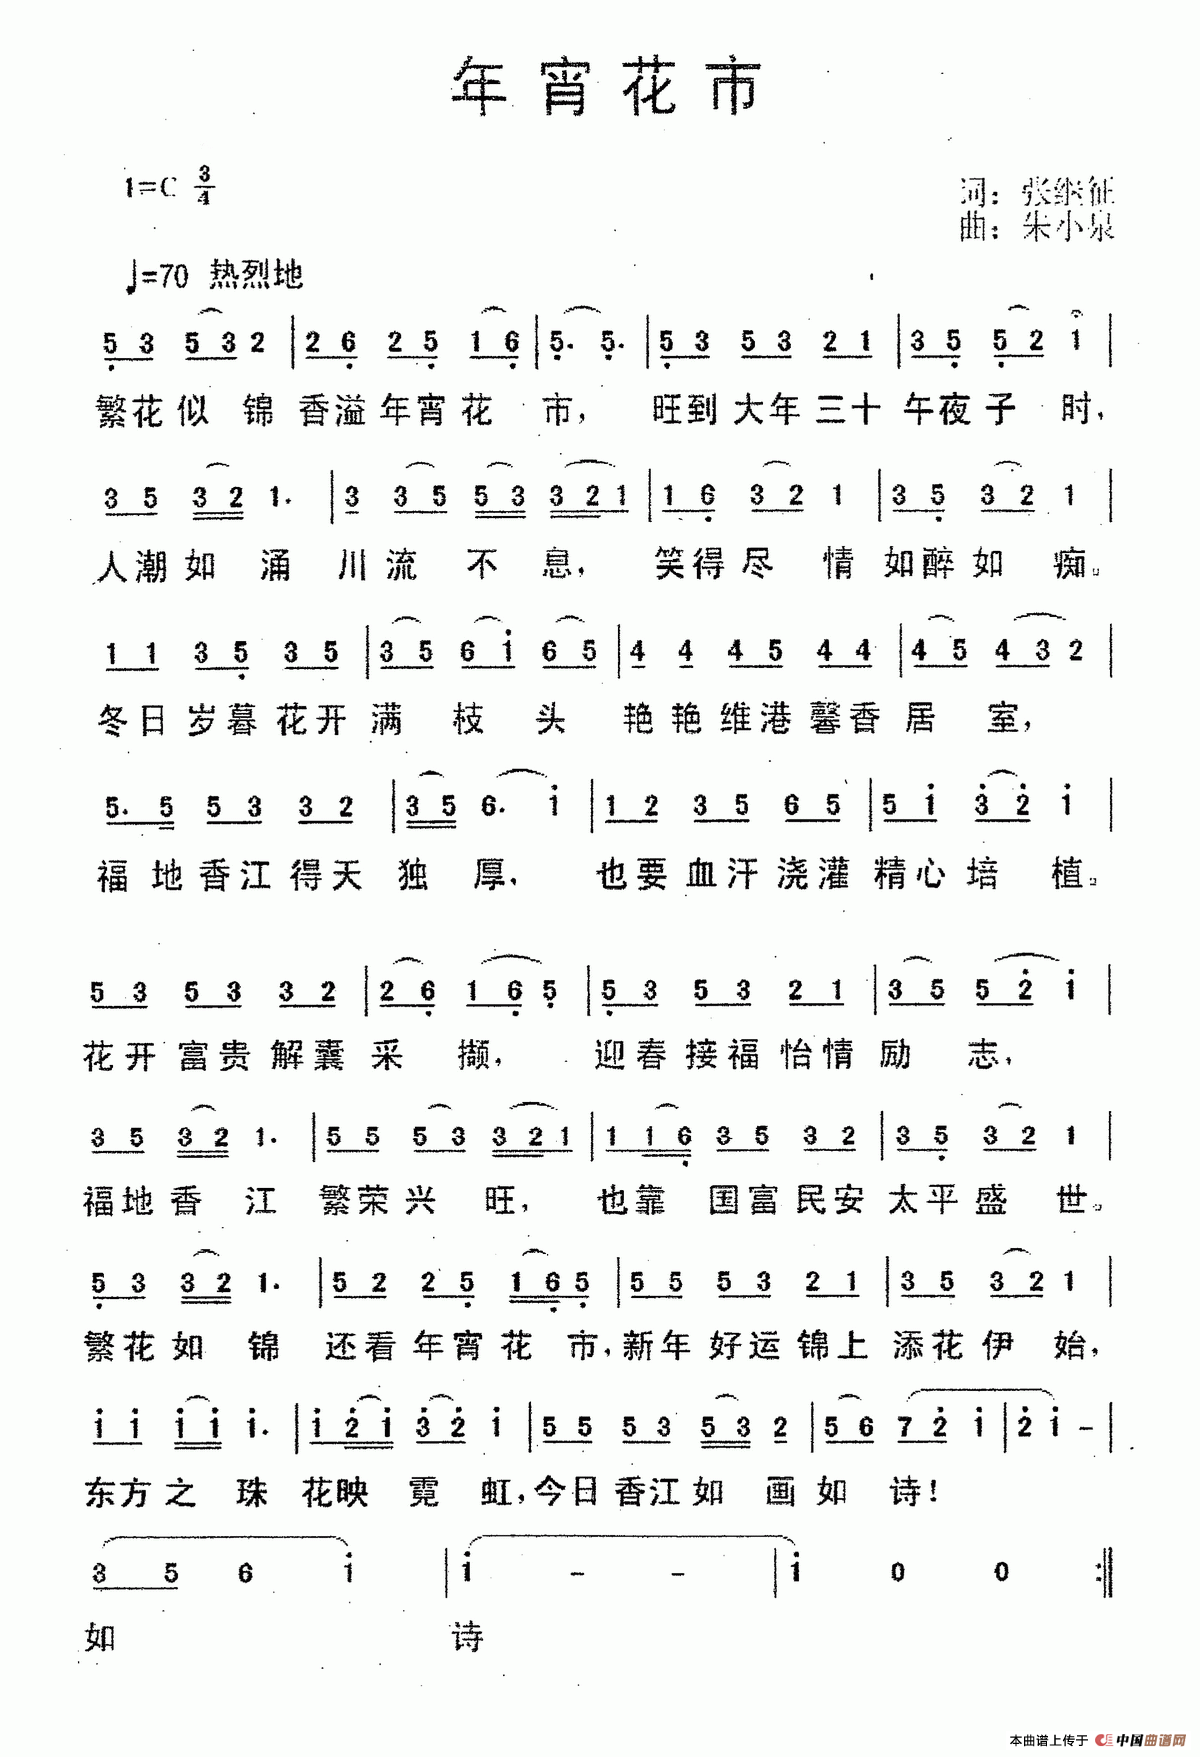 年宵花市
1=C 3/4
词：张继征
曲：朱小泉
♩=70 热烈地
5 3 5 3 2 | 2 6 2 5 1 6 | 5· 5· | 5 3 5 3 2 1 | 3 5 5 2 1 |
繁花似锦香溢年宵花市，旺到大年三十午夜子时，
3 5 3 2 1· | 3 3 5 5 3 3 2 1 | 1 6 3 2 1 | 3 5 3 2 1 |
人潮如涌川流不息，笑得尽情如醉如痴。
1 1 3 5 3 5 | 3 5 6 i 6 5 | 4 4 4 5 4 4 | 4 5 4 3 2 |
冬日岁暮花开满枝头艳艳维港馨香居室，
5· 5 5 3 3 2 | 3 5 6· i | 1 2 3 5 6 5 | 5 i 3 2 i |
福地香江得天独厚，也要血汗浇灌精心培植。
5 3 5 3 3 2 | 2 6 1 6 5 | 5 3 5 3 2 1 | 3 5 5 2 i |
花开富贵解囊采撷，迎春接福怡情励志，
3 5 3 2 1· | 5 5 5 3 3 2 1 | 1 1 6 3 5 3 2 | 3 5 3 2 1 |
福地香江繁荣兴旺，也靠国富民安太平盛世。
5 3 3 2 1· | 5 2 2 5 1 6 5 | 5 5 5 3 2 1 | 3 5 3 2 1 |
繁花如锦还看年宵花市，新年好运锦上添花伊始，
i i i i i· | i 2 i 3 2 i | 5 5 5 3 5 3 2 | 5 6 7 2 i | 2 i - |
东方之珠花映霓虹，今日香江如画如诗！
3 5 6 i | i - - | i 0 0 :||
如诗
本曲谱上传于 中国曲谱网